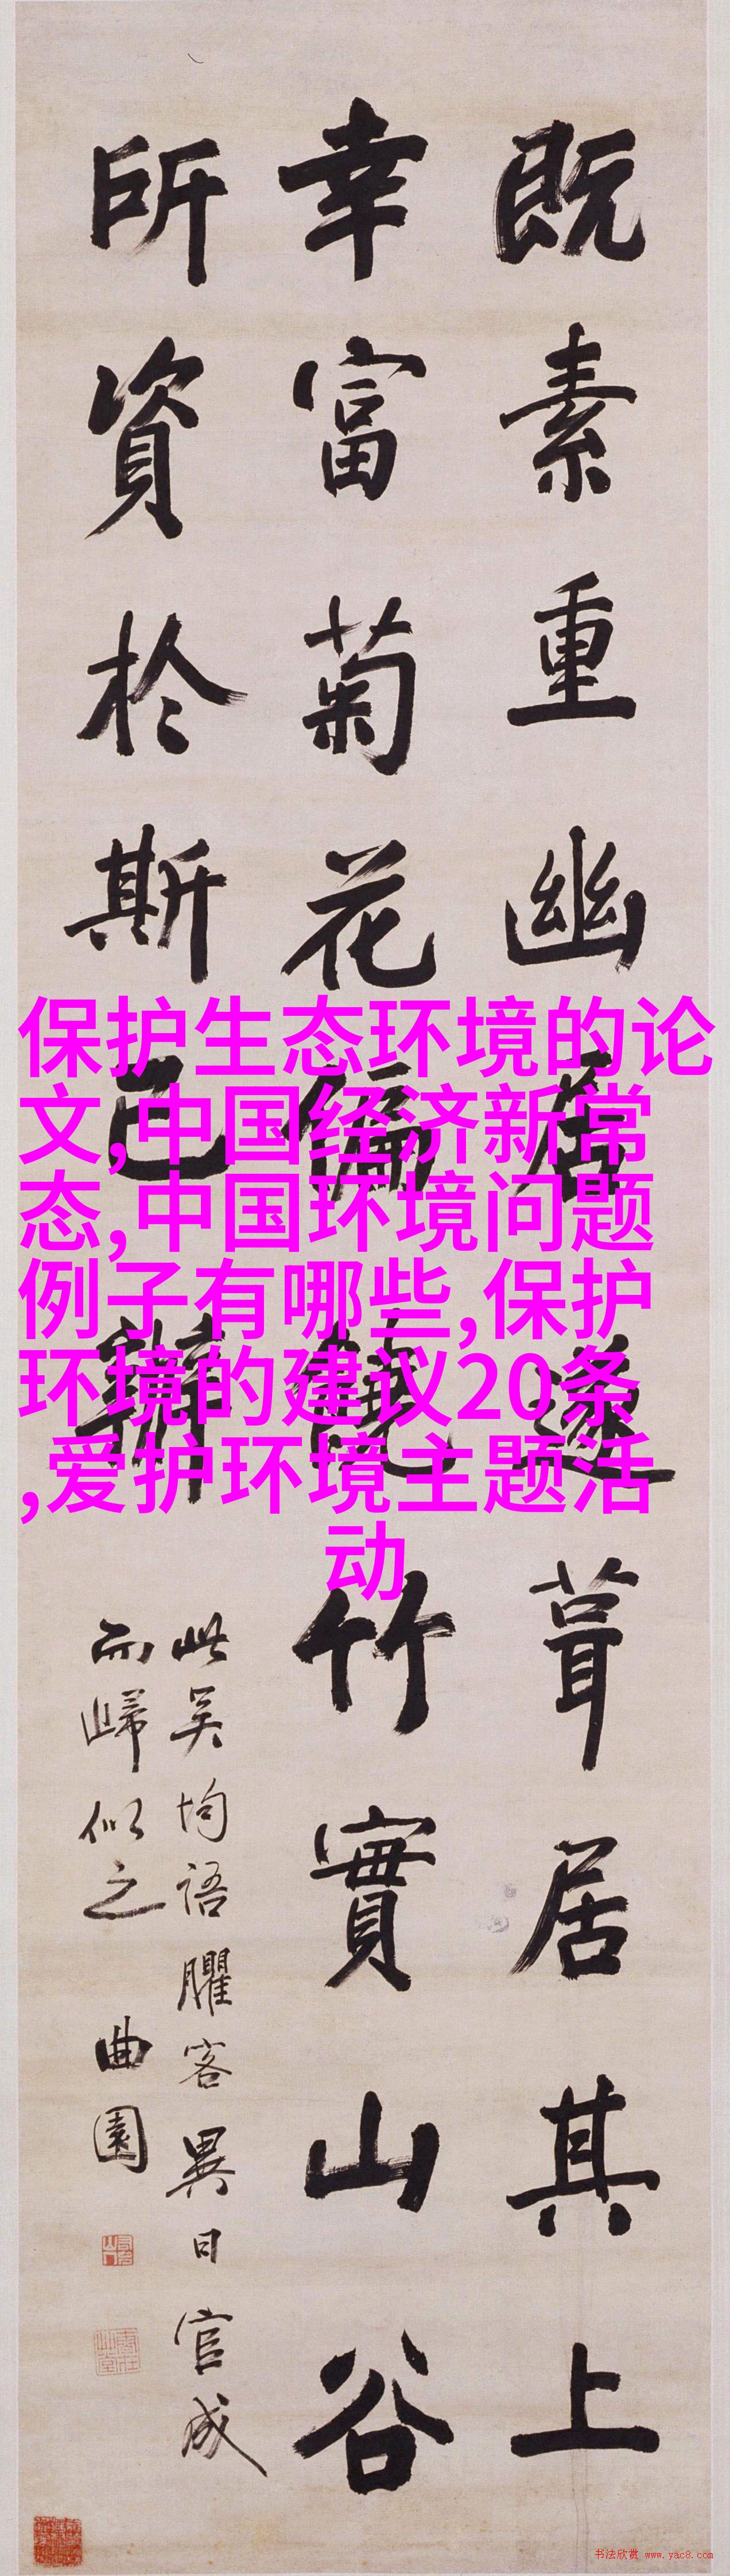 既素重幽居遂葺居其上
幸富菊花偏饒竹實山谷
所資於斯已辦
此吴均語臞客異日官成
而歸似之
曲園
保护生态环境的论
文,中国经济新常
态,中国环境问题
例子有哪些,保护
环境的建议20条
,爱护环境主题活
动
书法欣赏 www.yac8.com